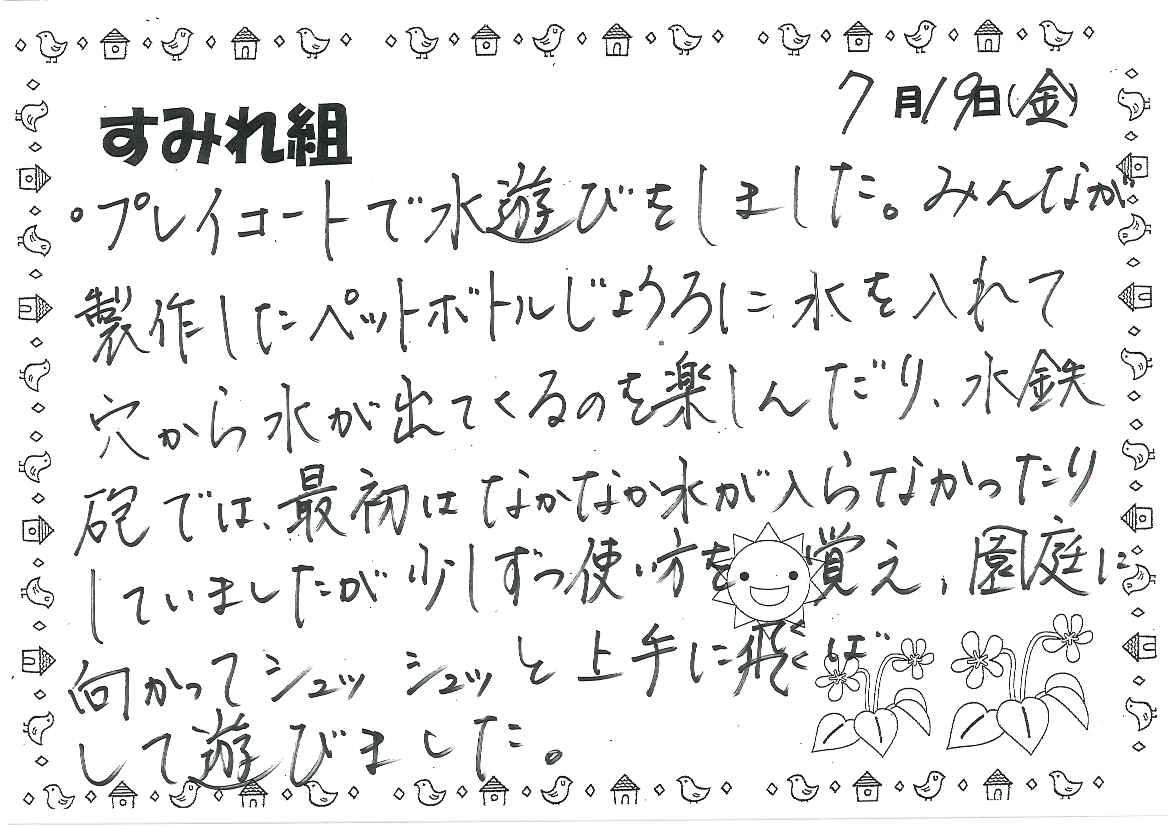 7月19日(金)
すみれ組
。プレイコートで水遊びをしました。みんなが
製作したペットボトルじょうろに水を入れて
穴から水が出てくるのを楽しんだり、水鉄
砲では、最初はなかなか水が入らなかったり
していましたが少しずつ使い方を覚え、園庭に
向かってシュッシュッと上手に飛ば
して遊びました。